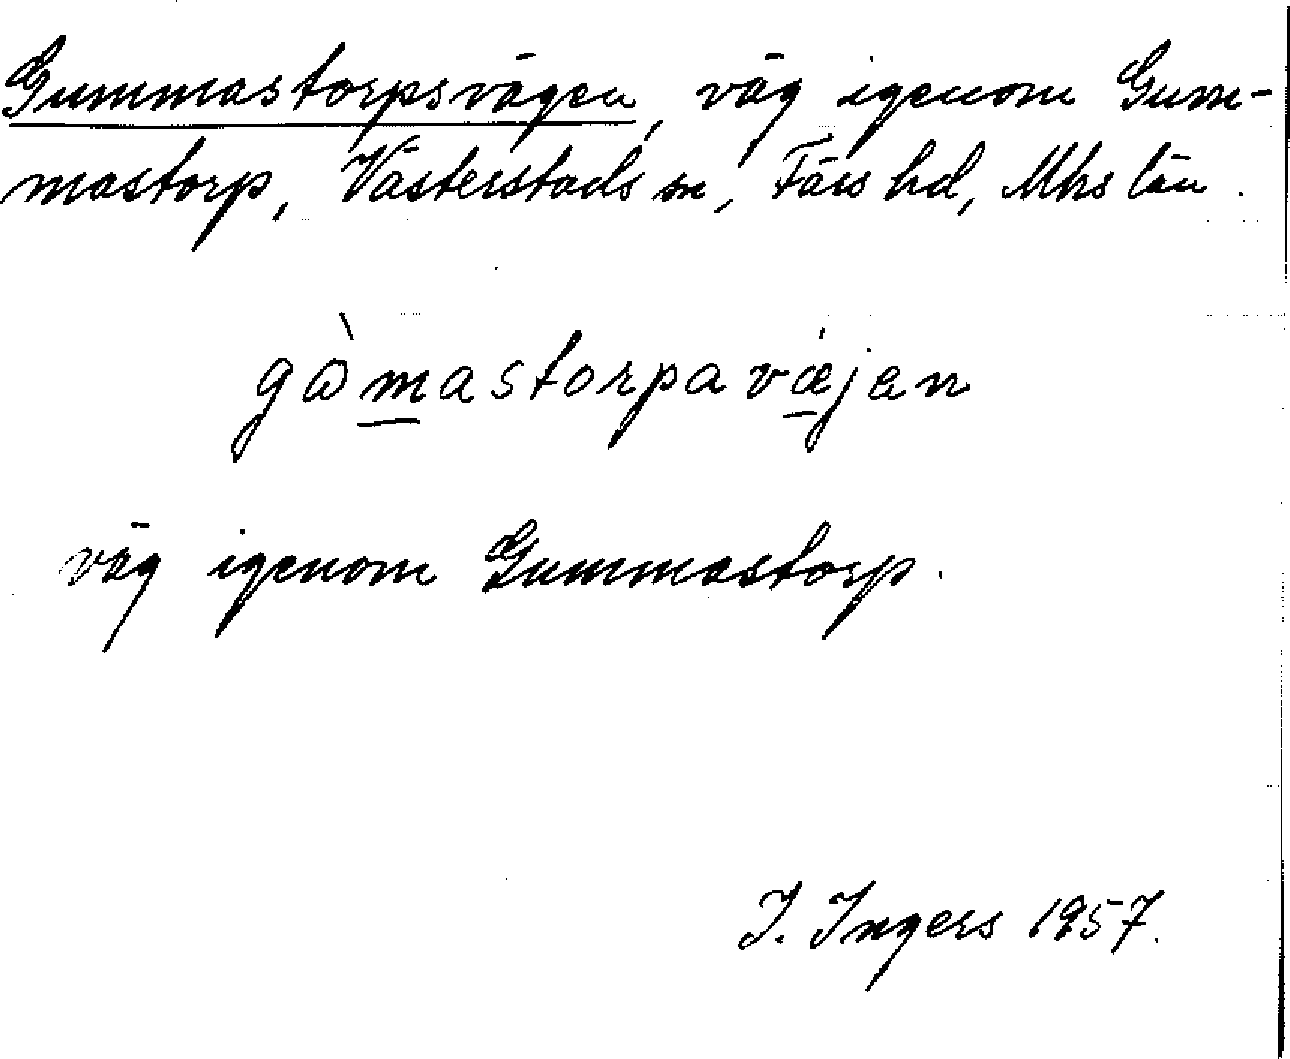 Gummastorpsvägen, väg igenom Gum-
mastorp, Västerstads sn, Färs hd, Mhs län.
gòmastorpavǽjen
väg igenom Gummastorp.
I. Ingers 1957.